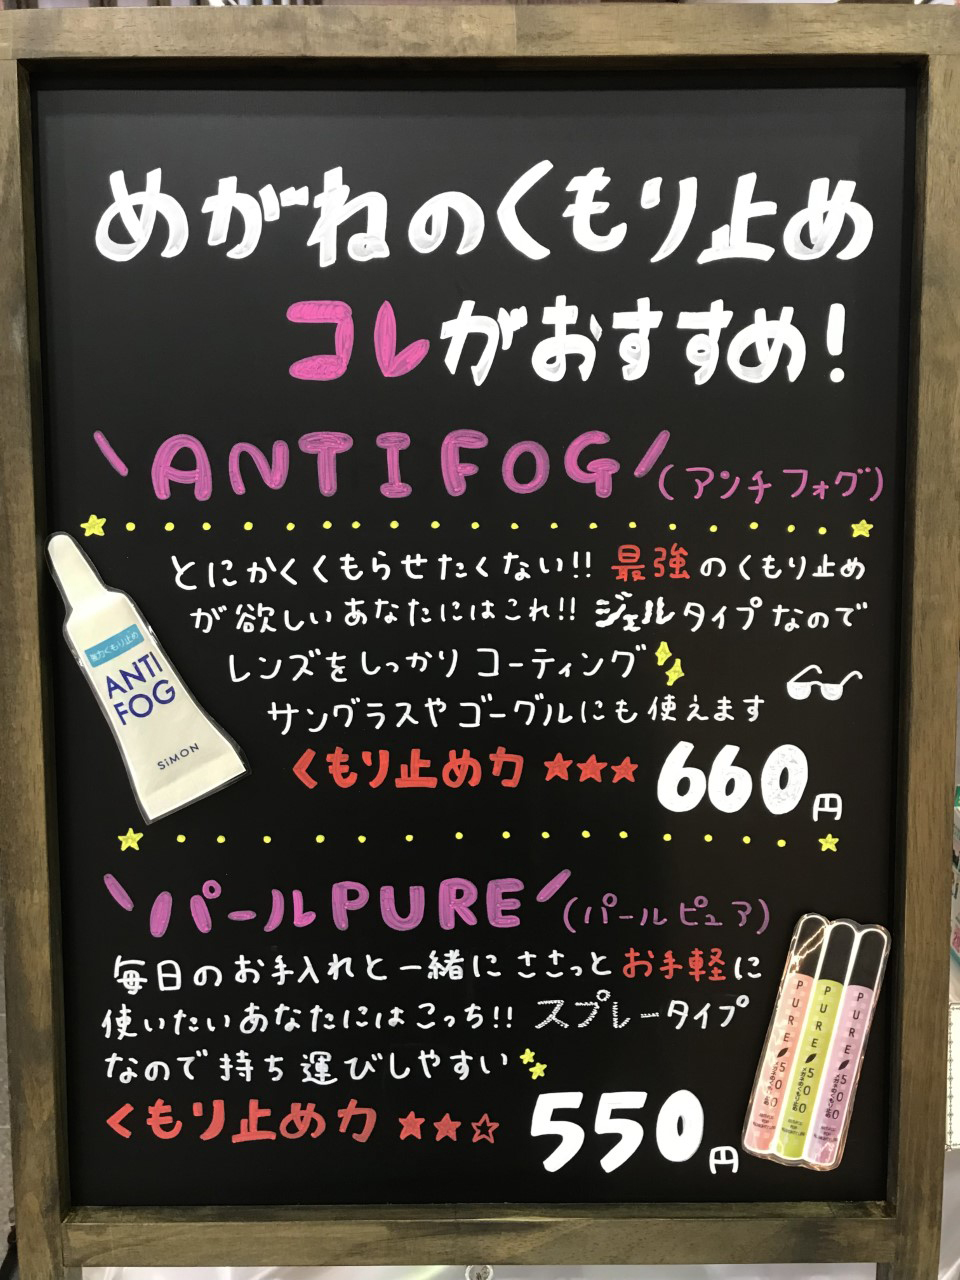 めがねのくもり止め
コレがおすすめ!
\ANTI FOG/(アンチフォグ)
とにかくくもらせたくない!! 最強のくもり止め
が欲しいあなたにはこれ!! ジェルタイプなので
レンズをしっかりコーティング
サングラスやゴーグルにも使えます
くもり止め力 ★★★ 660円
強力くもり止め
ANTI
FOG
SiMON
\パールPURE/(パールピュア)
毎日のお手入れと一緒にささっとお手軽に
使いたいあなたにはこっち!! スプレータイプ
なので持ち運びしやすい
くもり止め力 ★★☆ 550円
PURE 500
PURE 500
PURE 500